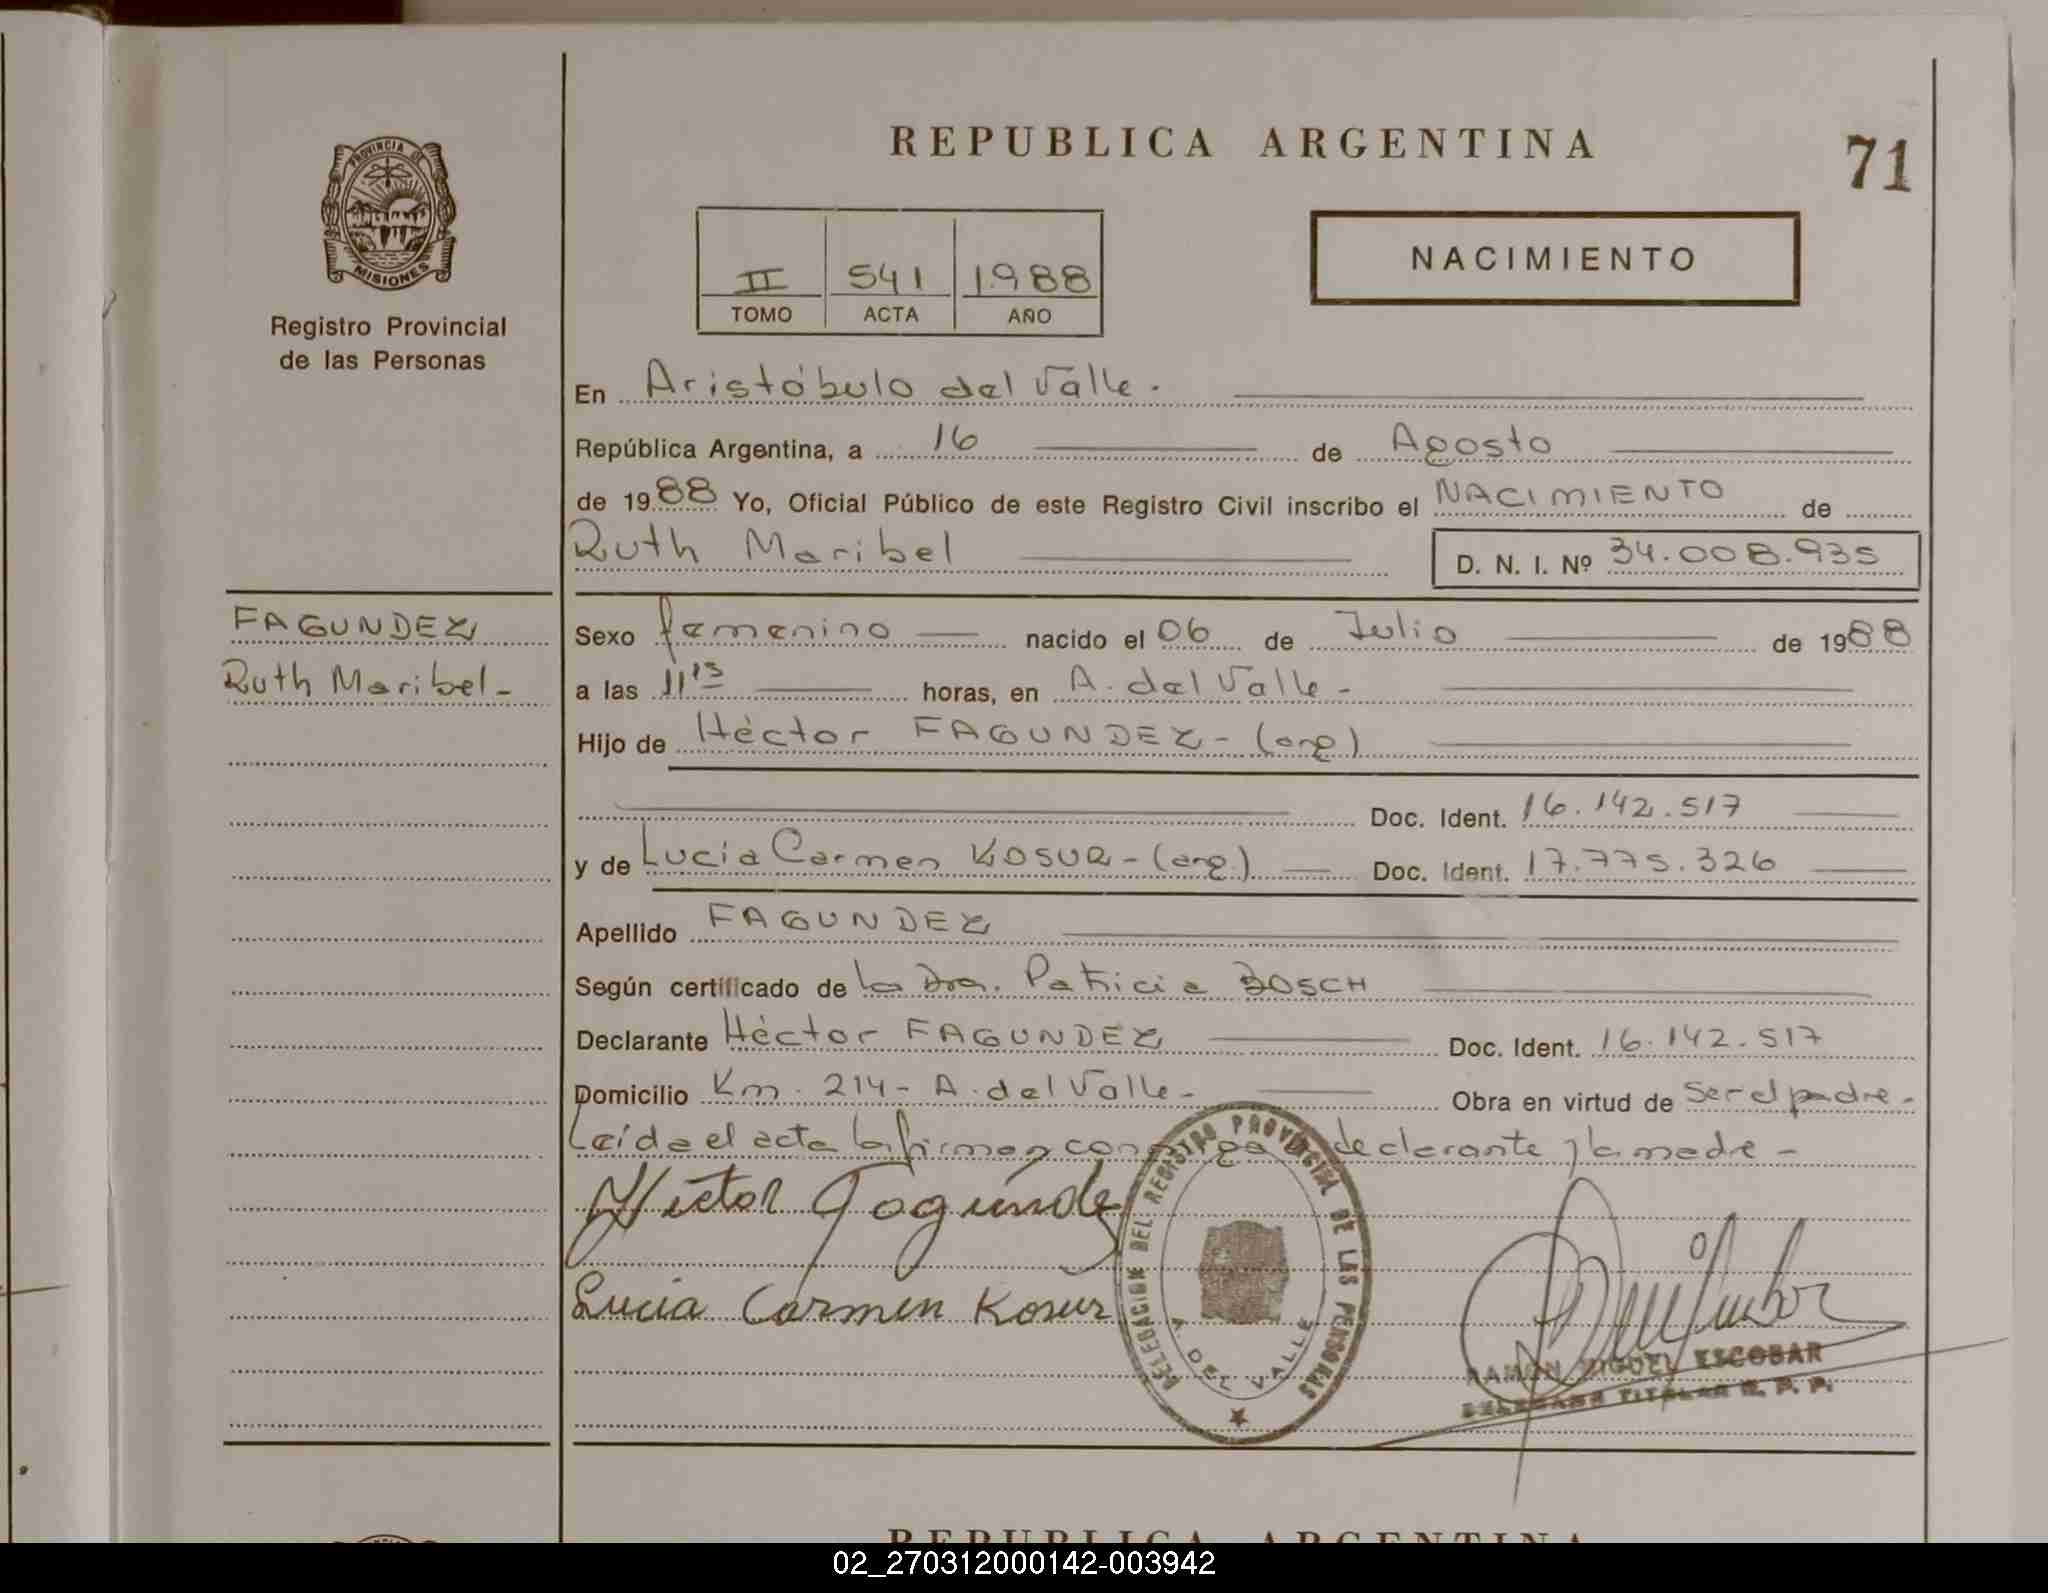 PROVINCIA DE
MISIONES
Registro Provincial
de las Personas
FAGUNDEZ
Ruth Maribel -
REPUBLICA ARGENTINA
71
II 541 1.988
TOMO ACTA AÑO
NACIMIENTO
En Aristóbulo del Valle.
República Argentina, a 16 de Agosto
de 1988 Yo, Oficial Público de este Registro Civil inscribo el NACIMIENTO de
Ruth Maribel D. N. I. Nº 34.008.935
Sexo femenino nacido el 06 de Julio de 1988
a las 11 15 horas, en A. del Valle -
Hijo de Héctor FAGUNDEZ - (arg)
Doc. Ident. 16.142.517
y de Lucía Carmen KOSUR - (arg.) Doc. Ident. 17.775.326
Apellido FAGUNDEZ
Según certificado de la Dra. Patricia BOSCH
Declarante Héctor FAGUNDEZ Doc. Ident. 16.142.517
Domicilio Km. 214 - A. del Valle - Obra en virtud de ser el padre -
Leída el acta la firman conmigo declarante y la madre -
Héctor Fagúndez
Lucia Carmen Kosur
DELEGACION DEL REGISTRO PROVINCIAL DE LAS PERSONAS
A. DEL VALLE
RAMON MIGUEL ESCOBAR
DELEGADO TITULAR R. P. P.
REPUBLICA ARGENTINA
02_270312000142-003942